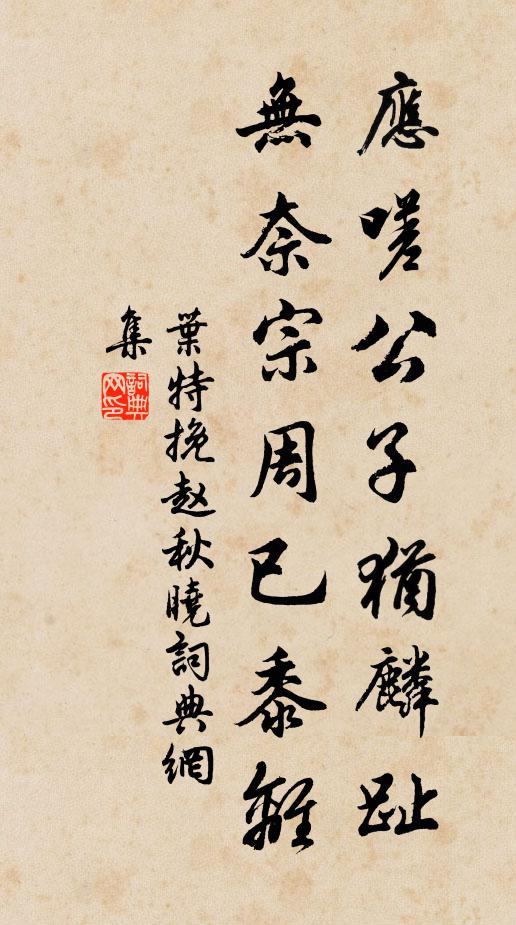 應嗟公子猶麟趾
無奈宗周已黍離
葉特挽赵秋曉詞典網
集
詞典
网印